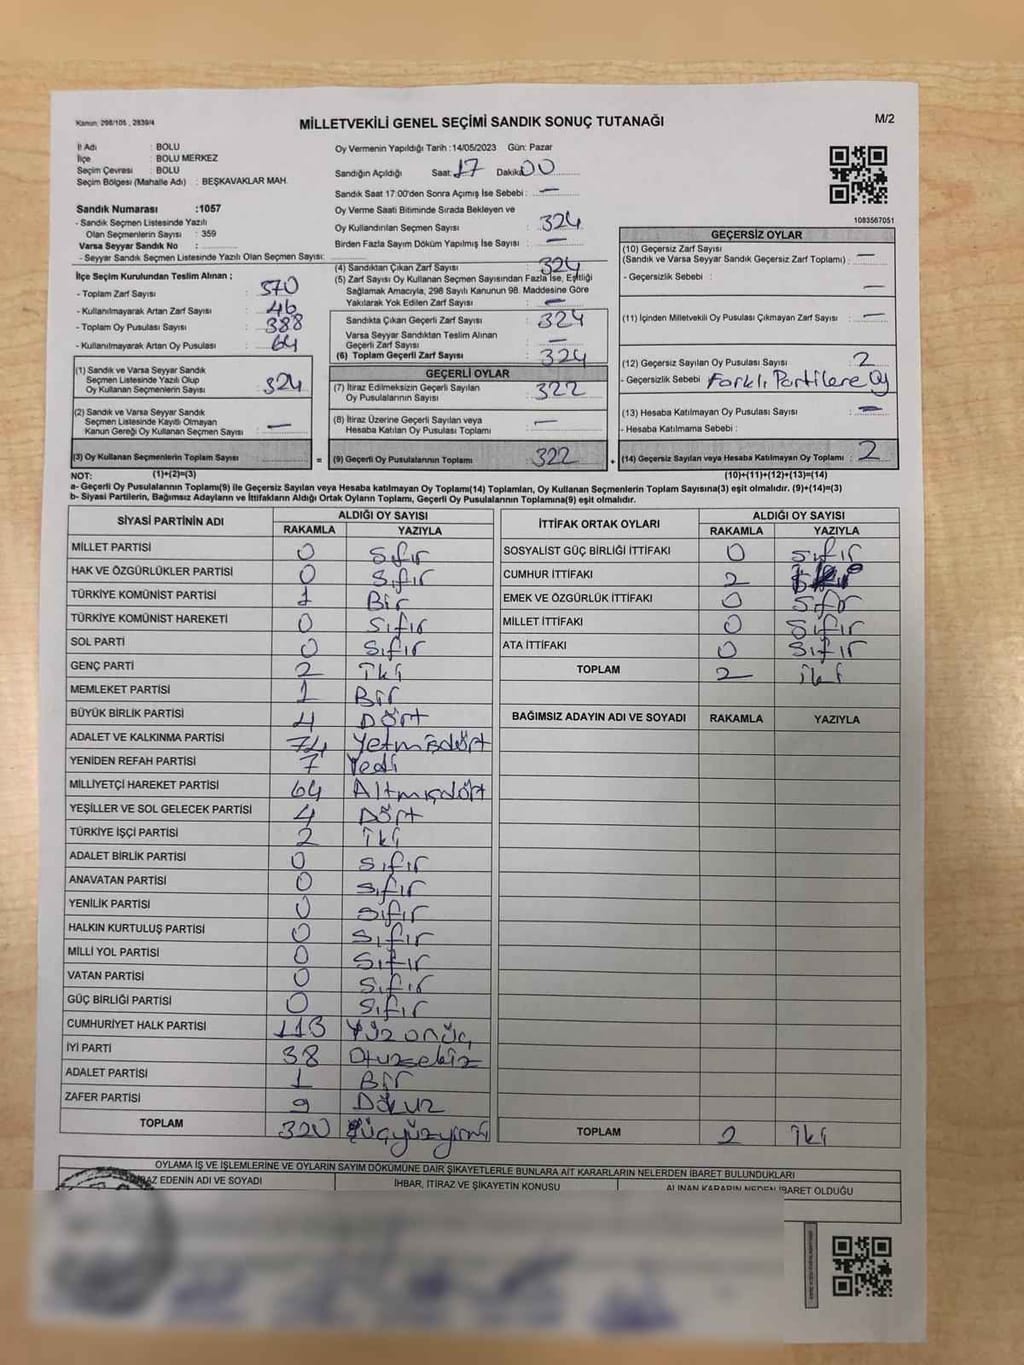 Kanun, 298/105 , 2839/4
MİLLETVEKİLİ GENEL SEÇİMİ SANDIK SONUÇ TUTANAĞI
M/2
İl Adı : BOLU
İlçe : BOLU MERKEZ
Seçim Çevresi : BOLU
Seçim Bölgesi (Mahalle Adı) : BEŞKAVAKLAR MAH.
Sandık Numarası :1057
- Sandık Seçmen Listesinde Yazılı
Olan Seçmenlerin Sayısı : 359
Varsa Seyyar Sandık No :
- Seyyar Sandık Seçmen Listesinde Yazılı Olan Seçmen Sayısı:
Oy Vermenin Yapıldığı Tarih :14/05/2023 Gün: Pazar
Sandığın Açıldığı Saat: 17 Dakika: 00
Sandık Saat 17:00'den Sonra Açımış İse Sebebi : —
Oy Verme Saati Bitiminde Sırada Bekleyen ve
Oy Kullandırılan Seçmen Sayısı : 324
Birden Fazla Sayım Döküm Yapılmış İse Sayısı : —
1083567051
İlçe Seçim Kurulundan Teslim Alınan ;
- Toplam Zarf Sayısı : 370
- Kullanılmayarak Artan Zarf Sayısı : 46
- Toplam Oy Pusulası Sayısı : 388
- Kullanılmayarak Artan Oy Pusulası : 64
(1) Sandık ve Varsa Seyyar Sandık
Seçmen Listesinde Yazılı Olup
Oy Kullanan Seçmenlerin Sayısı : 324
(2) Sandık ve Varsa Seyyar Sandık
Seçmen Listesinde Kayıtlı Olmayan
Kanun Gereği Oy Kullanan Seçmen Sayısı : —
(3) Oy Kullanan Seçmenlerin Toplam Sayısı :
(4) Sandıktan Çıkan Zarf Sayısı : 324
(5) Zarf Sayısı Oy Kullanan Seçmen Sayısından Fazla İse, Eşitliği
Sağlamak Amacıyla, 298 Sayılı Kanunun 98. Maddesine Göre
Yakılarak Yok Edilen Zarf Sayısı : —
Sandıkta Çıkan Geçerli Zarf Sayısı : 324
Varsa Seyyar Sandıktan Teslim Alınan
Geçerli Zarf Sayısı : —
(6) Toplam Geçerli Zarf Sayısı : 324
GEÇERLİ OYLAR
(7) İtiraz Edilmeksizin Geçerli Sayılan
Oy Pusulalarının Sayısı : 322
(8) İtiraz Üzerine Geçerli Sayılan veya
Hesaba Katılan Oy Pusulası Toplamı : —
= (9) Geçerli Oy Pusulalarının Toplamı : 322
GEÇERSİZ OYLAR
(10) Geçersiz Zarf Sayısı
(Sandık ve Varsa Seyyar Sandık Geçersiz Zarf Toplamı) : —
- Geçersizlik Sebebi :
—
(11) İçinden Milletvekili Oy Pusulası Çıkmayan Zarf Sayısı : —
(12) Geçersiz Sayılan Oy Pusulası Sayısı : 2
- Geçersizlik Sebebi : Farklı Partilere Oy
(13) Hesaba Katılmayan Oy Pusulası Sayısı : —
- Hesaba Katılmama Sebebi :
+ (14) Geçersiz Sayılan veya Hesaba Katılmayan Oy Toplamı : 2
NOT: (1)+(2)=(3) (10)+(11)+(12)+(13)=(14)
a- Geçerli Oy Pusulalarının Toplamı(9) ile Geçersiz Sayılan veya Hesaba katılmayan Oy Toplamı(14) Toplamları, Oy Kullanan Seçmenlerin Toplam Sayısına(3) eşit olmalıdır. (9)+(14)=(3)
b- Siyasi Partilerin, Bağımsız Adayların ve İttifakların Aldığı Ortak Oyların Toplamı, Geçerli Oy Pusulalarının Toplamına(9) eşit olmalıdır.
SİYASİ PARTİNİN ADI ALDIĞI OY SAYISI
RAKAMLA YAZIYLA
MİLLET PARTİSİ 0 Sıfır
HAK VE ÖZGÜRLÜKLER PARTİSİ 0 Sıfır
TÜRKİYE KOMÜNİST PARTİSİ 1 Bir
TÜRKİYE KOMÜNİST HAREKETİ 0 Sıfır
SOL PARTİ 0 Sıfır
GENÇ PARTİ 2 iki
MEMLEKET PARTİSİ 1 Bir
BÜYÜK BİRLİK PARTİSİ 4 Dört
ADALET VE KALKINMA PARTİSİ 74 Yetmişdört
YENİDEN REFAH PARTİSİ 7 Yedi
MİLLİYETÇİ HAREKET PARTİSİ 64 Altmışdört
YEŞİLLER VE SOL GELECEK PARTİSİ 4 Dört
TÜRKİYE İŞÇİ PARTİSİ 2 iki
ADALET BİRLİK PARTİSİ 0 sıfır
ANAVATAN PARTİSİ 0 sıfır
YENİLİK PARTİSİ 0 sıfır
HALKIN KURTULUŞ PARTİSİ 0 sıfır
MİLLİ YOL PARTİSİ 0 sıfır
VATAN PARTİSİ 0 sıfır
GÜÇ BİRLİĞİ PARTİSİ 0 sıfır
CUMHURİYET HALK PARTİSİ 113 Yüz onüç
İYİ PARTİ 38 Otuzsekiz
ADALET PARTİSİ 1 Bir
ZAFER PARTİSİ 9 Dokuz
TOPLAM 320 üçyüzyirmi
İTTİFAK ORTAK OYLARI ALDIĞI OY SAYISI
RAKAMLA YAZIYLA
SOSYALIST GÜÇ BİRLİĞİ İTTİFAKI 0 sıfır
CUMHUR İTTİFAKI 2
EMEK VE ÖZGÜRLÜK İTTİFAKI 0 Sıfır
MİLLET İTTİFAKI 0 Sıfır
ATA İTTİFAKI 0 Sıfır
TOPLAM 2 iki
BAĞIMSIZ ADAYIN ADI VE SOYADI RAKAMLA YAZIYLA
TOPLAM 2 iki
OYLAMA İŞ VE İŞLEMLERİNE VE OYLARIN SAYIM DÖKÜMÜNE DAİR ŞİKAYETLERLE BUNLARA AİT KARARLARIN NELERDEN İBARET BULUNDUKLARI
EDENİN ADI VE SOYADI İHBAR, İTİRAZ VE ŞİKAYETİN KONUSU ALINAN KARARIN NEDEN İBARET OLDUĞU